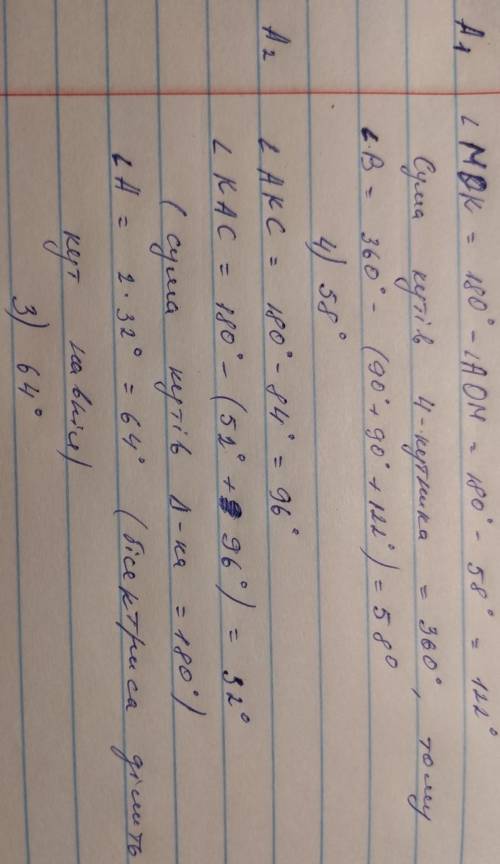 A1 ∠MOK = 180° - ∠AOM = 180° - 58° = 122°
Сума кутів 4-кутника = 360°, тому
∠B = 360° - (90° + 90° + 122°) = 58°
4) 58°
A2 ∠AKC = 180° - 84° = 96°
∠KAC = 180° - (52° + 96°) = 32°
(сума кутів Δ-ка = 180°)
∠A = 2·32° = 64° (бісектриса ділить
кут навпіл)
3) 64°